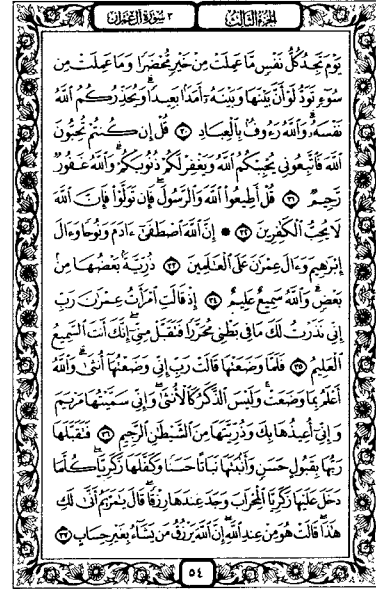 ٣ سورة آل عمران
الجزء الثالث
يَوْمَ تَجِدُ كُلُّ نَفْسٍ مَّا عَمِلَتْ مِنْ خَيْرٍ مُّحْضَرًا وَمَا عَمِلَتْ مِن
سُوٓءٍ تَوَدُّ لَوْ أَنَّ بَيْنَهَا وَبَيْنَهُۥٓ أَمَدَۢا بَعِيدًا ۗ وَيُحَذِّرُكُمُ ٱللَّهُ
نَفْسَهُۥ ۗ وَٱللَّهُ رَءُوفُۢ بِٱلْعِبَادِ ٣٠ قُلْ إِن كُنتُمْ تُحِبُّونَ
ٱللَّهَ فَٱتَّبِعُونِى يُحْبِبْكُمُ ٱللَّهُ وَيَغْفِرْ لَكُمْ ذُنُوبَكُمْ ۗ وَٱللَّهُ غَفُورٌ
رَّحِيمٌ ٣١ قُلْ أَطِيعُوا۟ ٱللَّهَ وَٱلرَّسُولَ ۖ فَإِن تَوَلَّوْا۟ فَإِنَّ ٱللَّهَ
لَا يُحِبُّ ٱلْكَٰفِرِينَ ٣٢ ۞ إِنَّ ٱللَّهَ ٱصْطَفَىٰٓ ءَادَمَ وَنُوحًا وَءَالَ
إِبْرَٰهِيمَ وَءَالَ عِمْرَٰنَ عَلَى ٱلْعَٰلَمِينَ ٣٣ ذُرِّيَّةَۢ بَعْضُهَا مِنۢ
بَعْضٍ ۗ وَٱللَّهُ سَمِيعٌ عَلِيمٌ ٣٤ إِذْ قَالَتِ ٱمْرَأَتُ عِمْرَٰنَ رَبِّ
إِنِّى نَذَرْتُ لَكَ مَا فِى بَطْنِى مُحَرَّرًا فَتَقَبَّلْ مِنِّىٓ ۖ إِنَّكَ أَنتَ ٱلسَّمِيعُ
ٱلْعَلِيمُ ٣٥ فَلَمَّا وَضَعَتْهَا قَالَتْ رَبِّ إِنِّى وَضَعْتُهَآ أُنثَىٰ وَٱللَّهُ
أَعْلَمُ بِمَا وَضَعَتْ وَلَيْسَ ٱلذَّكَرُ كَٱلْأُنثَىٰ ۖ وَإِنِّى سَمَّيْتُهَا مَرْيَمَ
وَإِنِّىٓ أُعِيذُهَا بِكَ وَذُرِّيَّتَهَا مِنَ ٱلشَّيْطَٰنِ ٱلرَّجِيمِ ٣٦ فَتَقَبَّلَهَا
رَبُّهَا بِقَبُولٍ حَسَنٍ وَأَنۢبَتَهَا نَبَاتًا حَسَنًا وَكَفَّلَهَا زَكَرِيَّا ۖ كُلَّمَا
دَخَلَ عَلَيْهَا زَكَرِيَّا ٱلْمِحْرَابَ وَجَدَ عِندَهَا رِزْقًا ۖ قَالَ يَٰمَرْيَمُ أَنَّىٰ لَكِ
هَٰذَا ۖ قَالَتْ هُوَ مِنْ عِندِ ٱللَّهِ ۖ إِنَّ ٱللَّهَ يَرْزُقُ مَن يَشَآءُ بِغَيْرِ حِسَابٍ ٣٧
٥٤